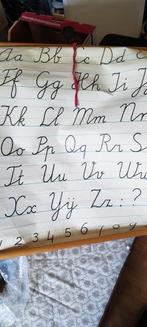 Aa Bb Cc Dd
Ff Gg Hh Ii J
Kk Ll Mm Nn
Oo Pp Qq Rr S
Tt Uu Vv Ww
Xx IJij Zz : ?
1 2 3 4 5 6 7 8 9